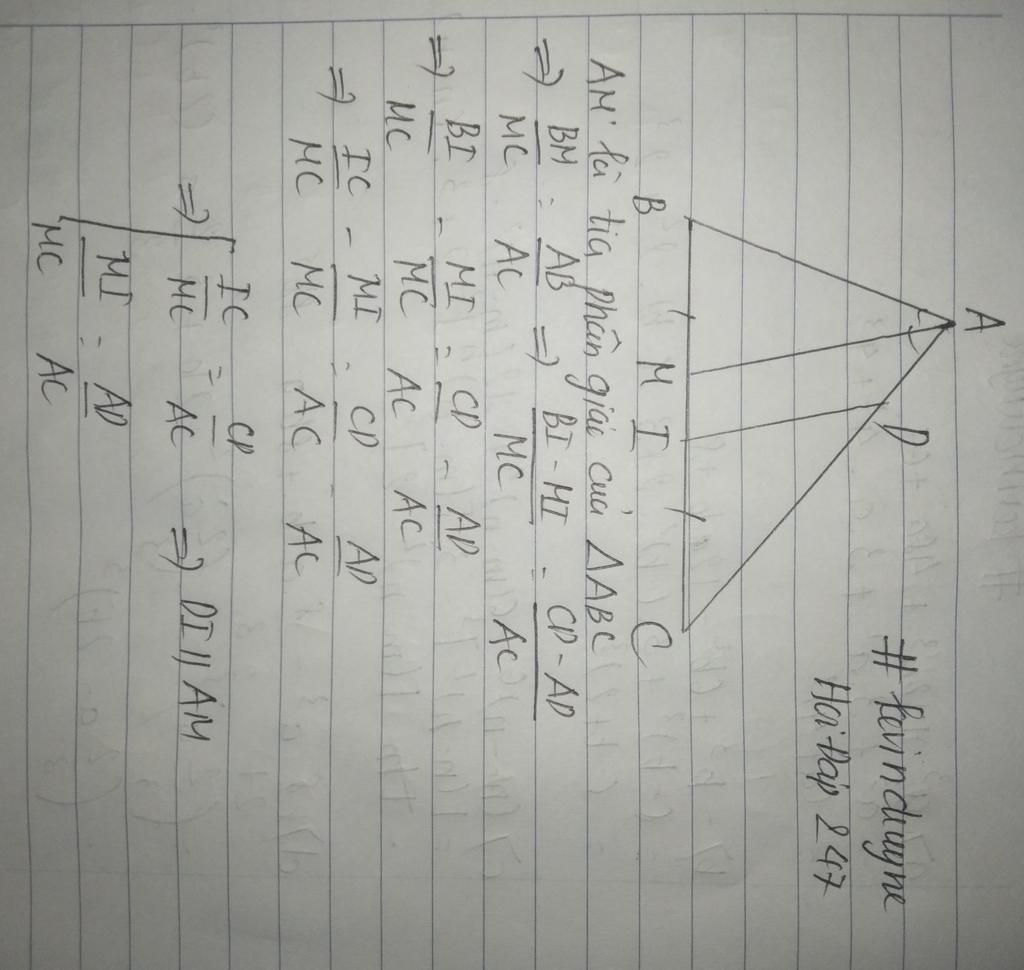 # kainduyne
Hoi Đáp 247
A
D
B M I C
AM là tia phân giác của ΔABC
⇒ BM/MC = AB/AC ⇒ BI - MI/MC = CD - AD/AC
⇒ BI/MC - MI/MC = CD/AC - AD/AC
⇒ IC/MC - MI/MC = CD/AC - AD/AC
⇒ [ IC/MC = CD/AC ⇒ DI // AM
MI/MC = AD/AC